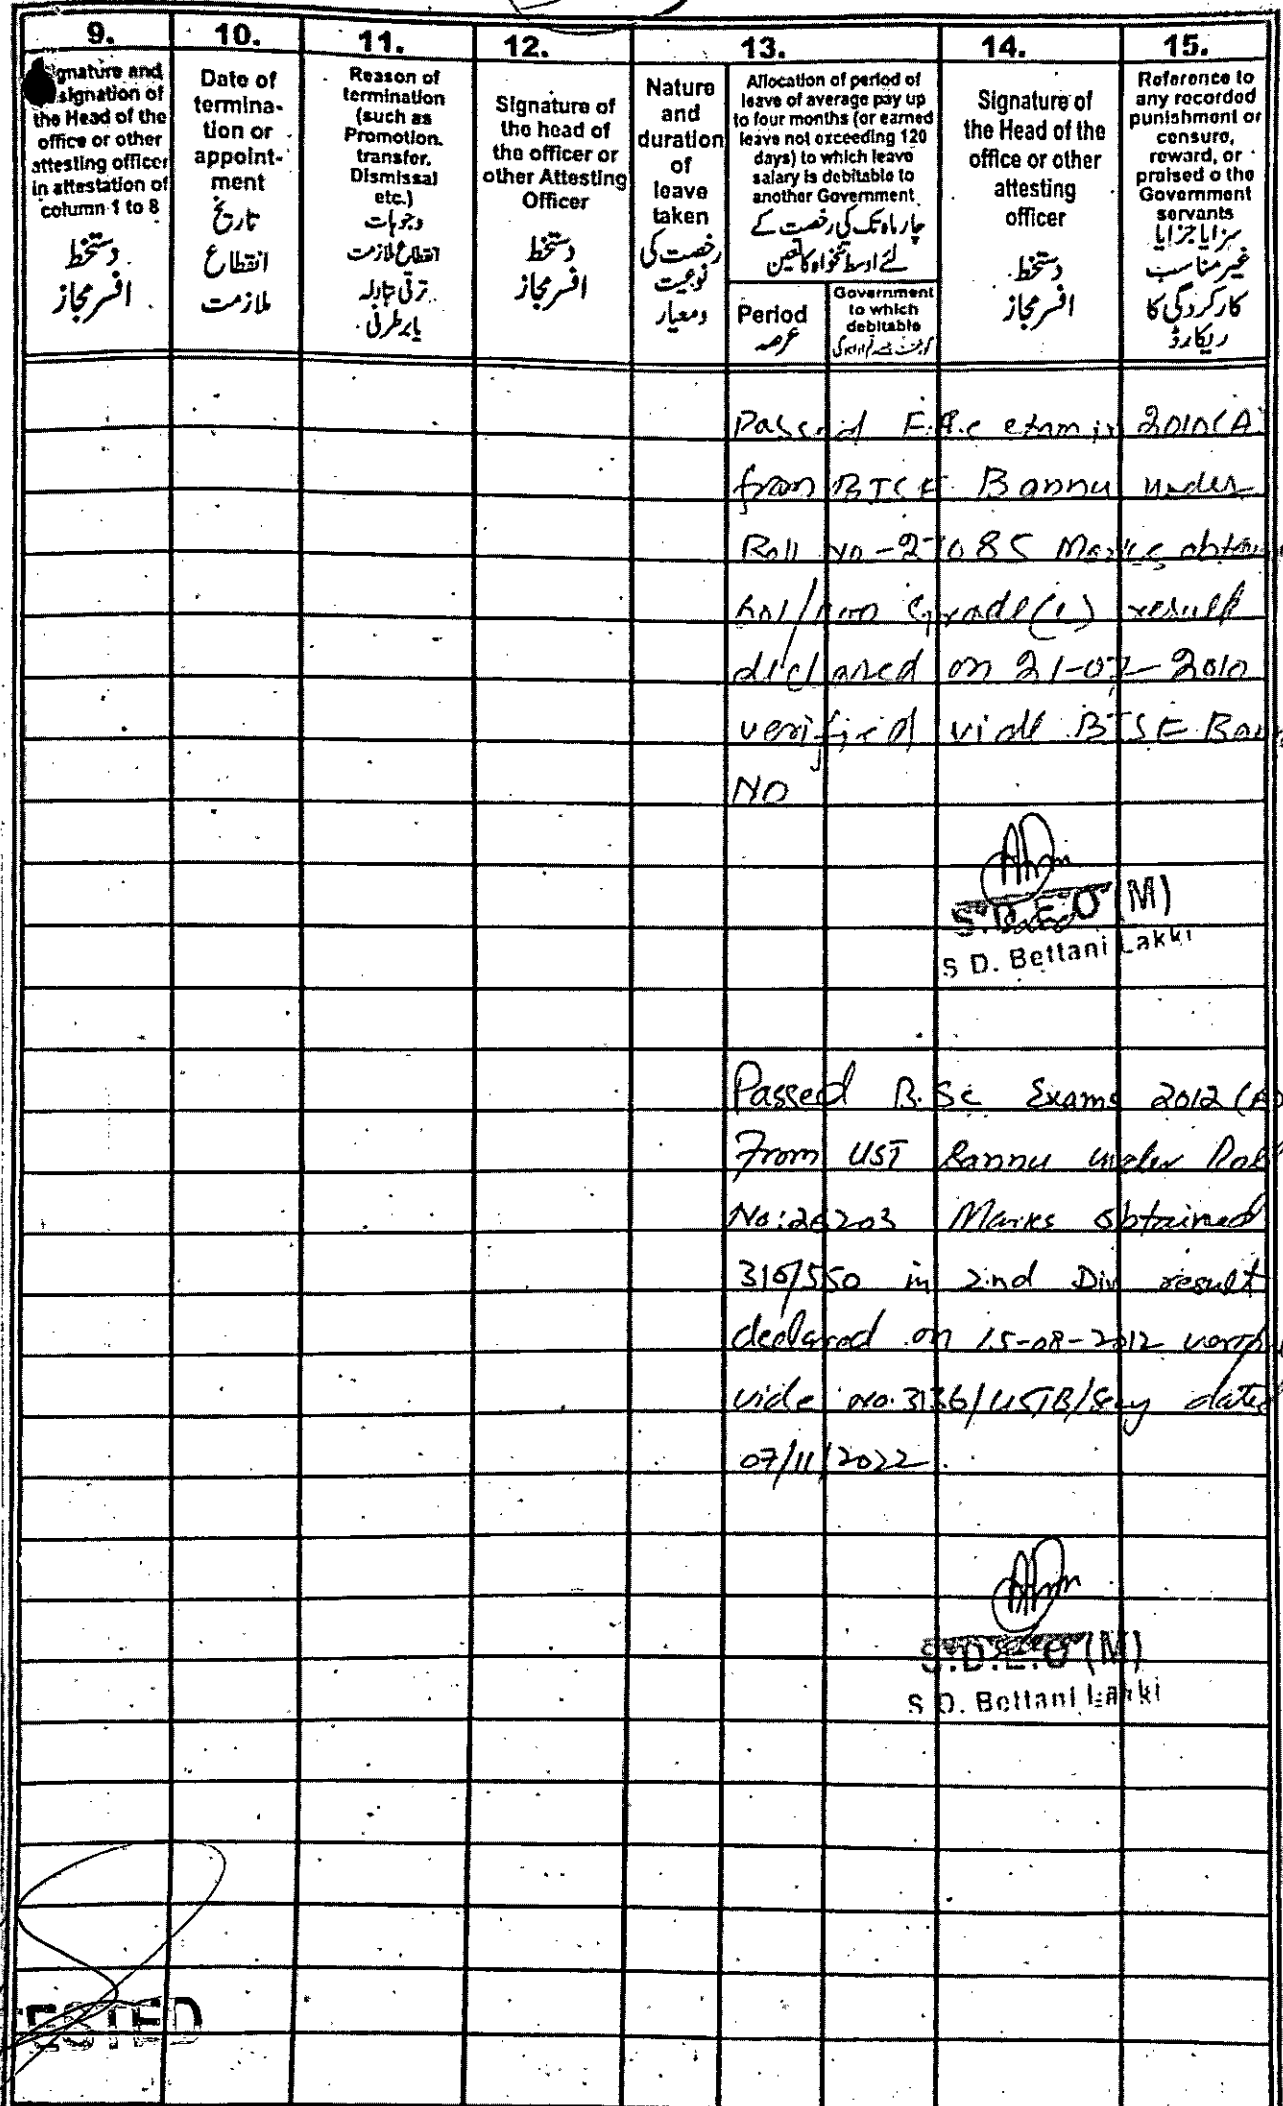 9. 10. 11. 12. 13. 14. 15.
gnature and
signation of
the Head of the
office or other
attesting officer
in attestation of
column 1 to 8
دستخط
افسر مجاز
Date of
termina-
tion or
appoint-
ment
تاریخ
انقطاع
ملازمت
Reason of
termination
(such as
Promotion.
transfer.
Dismissal
etc.)
وجوہات
انقطاع ملازمت
ترقی تبادلہ
یا برطرفی
Signature of
the head of
the officer or
other Attesting
Officer
دستخط
افسر مجاز
Nature
and
duration
of
leave
taken
رخصت کی
نوعیت
ومعیار
Allocation of period of
leave of average pay up
to four months (or earned
leave not exceeding 120
days) to which leave
salary is debitable to
another Government
چار ماہ تک کی رخصت کے
لئے اوسط تنخواہ کا تعین
Period
عرصہ
Government
to which
debitable
Signature of
the Head of the
office or other
attesting
officer
دستخط
افسر مجاز
Reference to
any recorded
punishment or
censure,
reward, or
praised o the
Government
servants
سزایا جزایا
غیر مناسب
کارکردگی کا
ریکارڈ
Passed exam in 2010(A)
from Bannu under
Roll No- Marks
Grade result
declared on 21-07-2010
verified vide
NO
S.D.E.O (M)
S D. Bettani Lakki
Passed B.Sc Exams 2012
From UST Bannu under Roll
No: Marks obtained
316/550 in 2nd Div result
declared on 15-08-2012
vide no. 3136/USTB/ dated
07/11/2022.
S.D.E.O (M)
S D. Bettani Lakki
ESTED